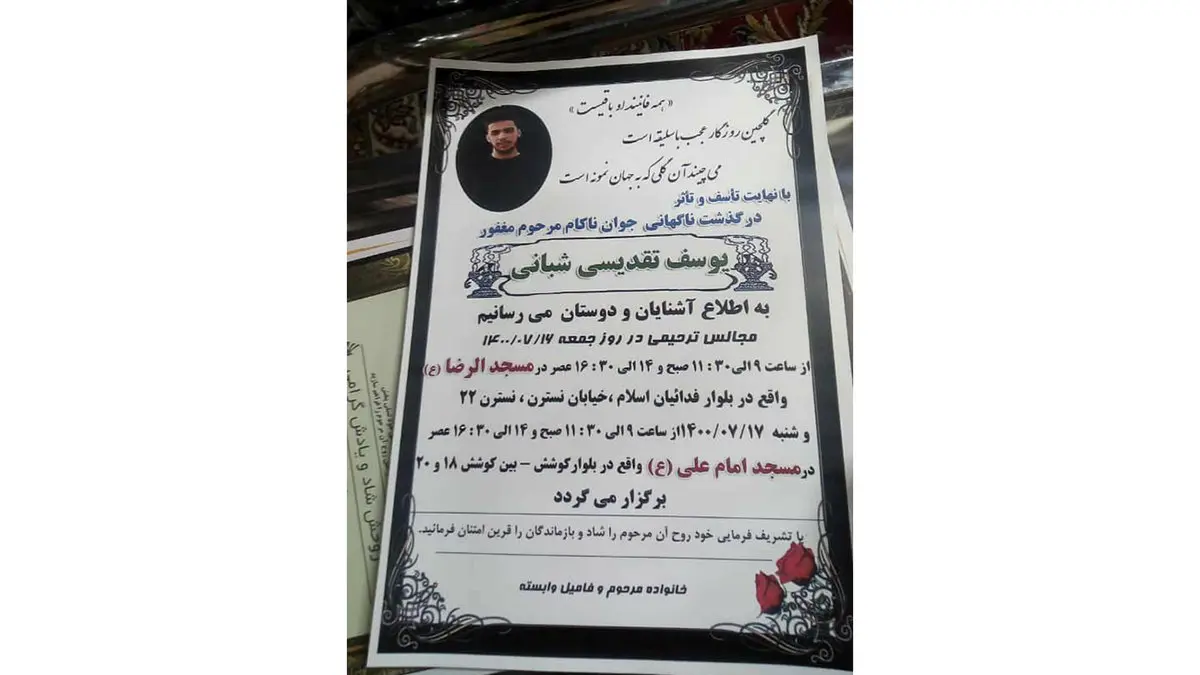 «همه فانیند او باقیست»
گلچین روزگار عجب با سلیقه است
می چیند آن گلی که به جهان نمونه است
با نهایت تأسف و تأثر
درگذشت ناگهانی جوان ناکام مرحوم مغفور
یوسف تقدیسی شبانی
به اطلاع آشنایان و دوستان می رسانیم
مجالس ترحیمی در روز جمعه ۱۴۰۰/۰۷/۱۶
از ساعت ۹ الی ۱۱:۳۰ صبح و ۱۴ الی ۱۶:۳۰ عصر در مسجد الرضا (ع)
واقع در بلوار فدائیان اسلام ،خیابان نسترن ، نسترن ۲۲
و شنبه ۱۴۰۰/۰۷/۱۷ از ساعت ۹ الی ۱۱:۳۰ صبح و ۱۴ الی ۱۶:۳۰ عصر
در مسجد امام علی (ع) واقع در بلوار کوشش – بین کوشش ۱۸ و ۲۰
برگزار می گردد
با تشریف فرمایی خود روح آن مرحوم را شاد و بازماندگان را قرین امتنان فرمائید.
خانواده مرحوم و فامیل وابسته
روحش شاد و یادش گرامی